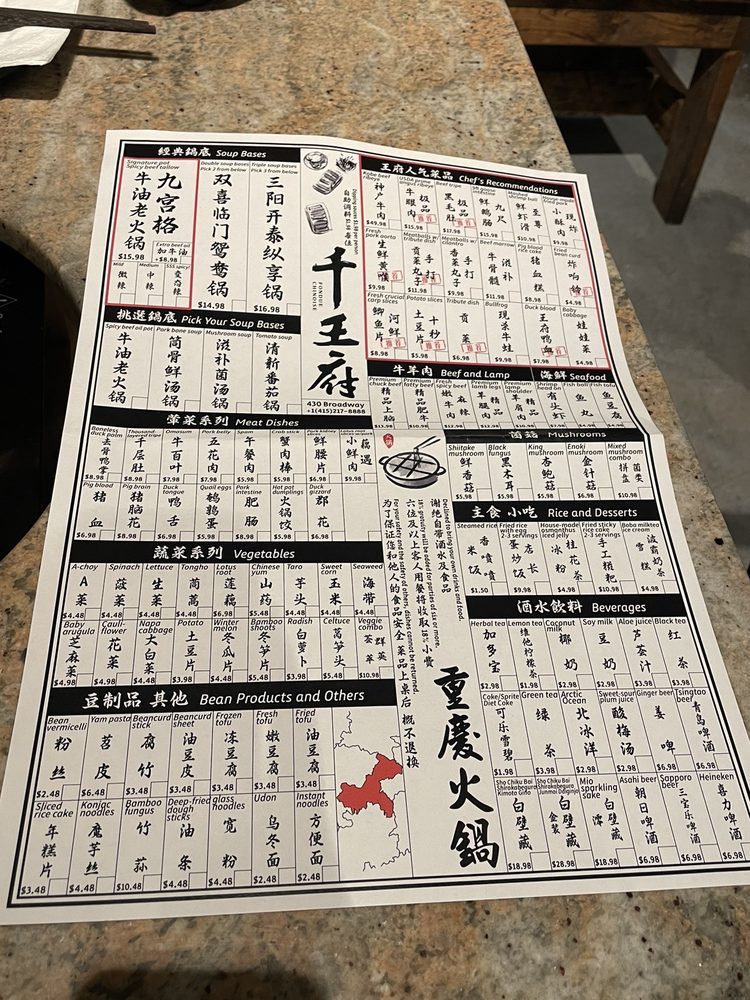 經典鍋底 Soup Bases
Signature pot
Spicy beef tallow
九宫格
牛油老火锅
$15.98
Extra beef oil
加牛油
+$8.98
Mild
微辣
Medium
中辣
SSS spicy!
变态辣
Double soup bases
Pick 2 from below
双喜临门鸳鸯锅
$14.98
Triple soup bases
Pick 3 from below
三阳开泰纵享锅
$16.98
挑選鍋底 Pick Your Soup Bases
Spicy beef oil pot
牛油老火锅
Pork bone soup
筒骨鲜汤锅
Mushroom soup
滋补菌汤锅
Tomato soup
清新番茄锅
Dipping sauces $1.98 per person
自助调料 $1.98 每位
千王府
FONDUE
CHINOISE
430 Broadway
+1(415)217-8888
王府人气菜品 Chef's Recommendations
Kobe beef
ribeye
神户牛肉
$49.98
USDA prime
angus ribeye
极品牛腿肉
推荐
$15.98
Beef tripe
极品黑毛肚
推荐
$17.98
九尺鲜鹅肠
$15.98
至尊鲜虾滑
$10.98
House-made
fried pork
现炸小酥肉
$9.98
Fresh
pork aorta
生鲜黄喉
推荐
$8.98
Meatballs w/
tribute dish
手打贡菜丸子
推荐
$9.98
Meatballs w/
cilantro
手打香菜丸子
$9.98
Beef marrow
滋补牛骨髓
$11.98
Pig blood
rice cake
猪血糕
$8.98
Fried
bean curd
炸响铃
推荐
$4.98
Fresh crucial
carp slices
河鲜鲫鱼片
$8.98
Potato slices
十秒土豆片
$5.98
Tribute dish
贡菜
推荐
$6.98
Bullfrog
现杀牛蛙
$9.98
Duck blood
王府鸭血
推荐
$7.98
Baby
cabbage
娃娃菜
$4.98
牛羊肉 Beef and Lamp
Premium
chuck beef
精品上脑
Premium
fatty beef
精品肥牛
Fresh
spicy beef
麻辣嫩牛
Premium
lamp leg
精品羊腿肉
Premium lamp
shoulder
精品羊肩肉
海鲜 Seafood
Shrimp
head on
有头虾
Fish ball
鱼丸
Fish tofu
鱼豆腐
葷菜系列 Meat Dishes
Boneless
duck palm
去骨鸭掌
$8.98
Thousand
layered tripe
千层肚
$8.98
Omasum
牛百叶
$7.98
Pork belly
五花肉
$7.98
Spam
午餐肉
$5.98
Crab stick
蟹肉棒
$5.98
Pork kidney
鲜腰片
$6.98
藕遇小鲜肉
$9.98
Pig blood
猪血
$6.98
Pig brain
猪脑花
$8.98
Duck
tongue
鸭舌
Quail eggs
鹌鹑蛋
$5.98
Pork
intestine
肥肠
$8.98
Hot pot
dumplings
火锅饺
$6.98
Duck
gizzard
郡花
$6.98
菌菇 Mushrooms
Shiitake
mushrooms
鲜香菇
$5.98
Black
fungus
黑木耳
$5.98
King
mushrooms
杏鲍菇
$5.98
Enoki
mushrooms
金针菇
$6.98
Mixed
mushroom
combo
菌类拼盘
$10.98
蔬菜系列 Vegetables
A-choy
A菜
$4.48
Spinach
菠菜
$4.48
Lettuce
生菜
$4.48
Tongho
茼蒿
$4.48
Lotus
root
莲藕
$6.98
Chinese
yum
山药
$5.48
Taro
芋头
$4.48
Sweet
corn
玉米
$4.48
Seaweed
海带
$4.48
Baby
arugula
芝麻菜
$4.98
Cauli-
flower
花菜
$4.98
Napa
cabbage
大白菜
$4.98
Potato
土豆片
$4.48
Winter
melon
冬瓜片
$4.48
Bamboo
shoots
冬笋片
$5.48
Radish
白萝卜
$3.48
Celtuce
莴笋头
$5.48
Veggie
combo
群英荟萃
$10.98
declined to bring your own drinks and food.
谢绝自带酒水及食品
18% gratuity will be added for parties of six or more.
六位及以上客人用餐将收取18%小费
for your safety and the safety of others, dishes cannot be returned.
为了保证您和他人的食品安全 菜品上桌后 概不退换
主食 小吃 Rice and Desserts
Steamed rice
香喷喷米饭
$1.50
Fried rice
with egg
2-3 servings
店长蛋炒饭
$9.98
House-made
osmanthus
iced jelly
桂花冰粉
$4.98
Fried sticky
rice cake
2-3 servings
手工糍粑
$10.98
Boba milktea
ice cream
波霸奶茶雪糕
$4.98
豆制品 其他 Bean Products and Others
Bean
vermicelli
粉丝
$2.48
Yam pasta
苕皮
$6.48
Beancurd
stick
腐竹
$3.48
Beancurd
sheet
油豆皮
$3.48
Frozen
tofu
冻豆腐
$3.48
Fresh
tofu
嫩豆腐
$3.48
Fried
tofu
油豆腐
$3.48
Sliced
rice cake
年糕片
$3.48
Konjac
noodles
魔芋丝
$4.48
Bamboo
fungus
竹荪
$10.48
Deep-fried
dough
sticks
油条
$4.48
glass
noodles
宽粉
$4.48
Udon
乌冬面
$2.48
Instant
noodles
方便面
$2.48
重慶火鍋
酒水飲料 Beverages
Herbal tea
加多宝
$2.98
Lemon tea
维他柠檬茶
$1.98
Coconut
milk
椰奶
$2.98
Soy milk
豆奶
$2.98
Aloe juice
芦荟汁
$3.98
Black tea
红茶
$3.98
Coke/Sprite
Diet Coke
可乐雪碧
$1.98
Green tea
绿茶
$3.98
Arctic
Ocean
北冰洋
$2.98
Sweet-sour
plum juice
酸梅汤
$2.98
Ginger beer
姜啤
$6.98
Tsingtao
beer
青岛啤酒
$6.98
Sho Chiku Bai
Shirakabegura
Kimoto Ginjo
白壁藏
$18.98
Sho Chiku Bai
Shirakabegura
Junmai Daiginjo
白壁藏
金装
$28.98
Mio
sparkling
sake
白壁藏
澪
$18.98
Asahi beer
朝日啤酒
$6.98
Sapporo
beer
三宝乐啤酒
$6.98
Heineken
喜力啤酒
$6.98